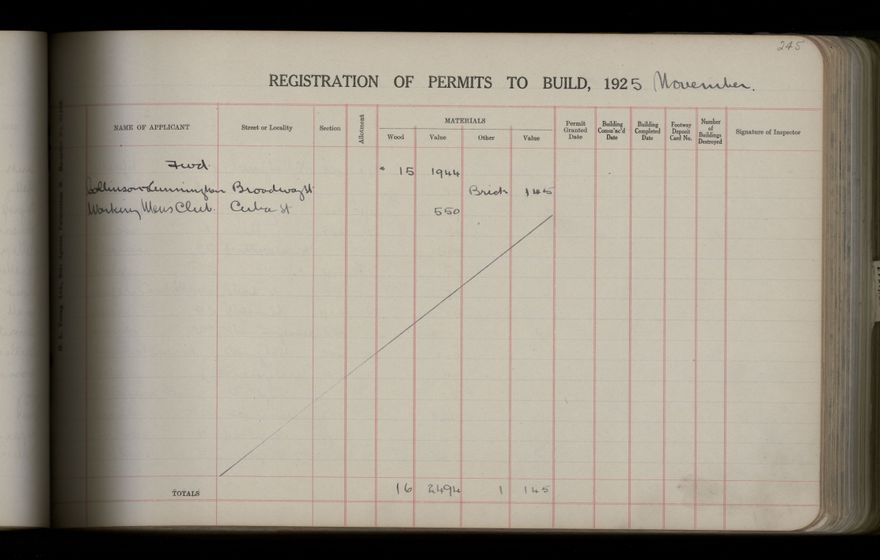 245
REGISTRATION OF PERMITS TO BUILD, 1925 November.
NAME OF APPLICANT Street or Locality Section Allotment MATERIALS Wood Value Other Value Permit Granted Date Building Comm'nc'd Date Building Completed Date Footway Deposit Card No. Number of Buildings Destroyed Signature of Inspector
Fwd. 15 1944
Broadway St Brick 145
Working Mens Club. Cuba St 550
TOTALS 16 2494 1 145